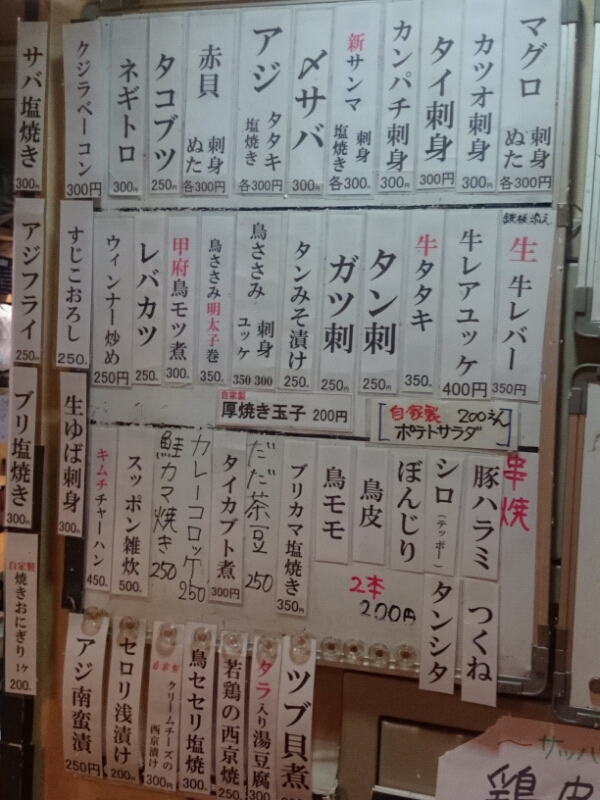 マグロ 刺身 ぬた 各300円
カツオ刺身 300円
タイ刺身 300円
カンパチ刺身 300円
新サンマ 刺身 塩焼き 各300円
〆サバ 300円
アジ タタキ 塩焼き 各300円
赤貝 刺身 ぬた 各300円
タコブツ 250円
ネギトロ 300円
クジラベーコン 300円
サバ塩焼き 300円
生 牛レバー 350円
牛レアユッケ 400円
牛タタキ 350.
タン刺 250円
ガツ刺 250円
タンみそ漬け 250.
鳥ささみ 刺身 ユッケ 350 300
鳥ささみ明太子巻 350.
甲府鳥モツ煮 300.
レバカツ 250.
ウィンナー炒め 250円
すじこおろし 250.
アジフライ 250.
自家製 厚焼き玉子 200円
自家製 200えん
ポテトサラダ
串焼
豚ハラミ
シロ(テッポー)
ぼんじり
鳥皮
鳥モモ
つくね
タンシタ
2本
200円
ブリカマ塩焼き 350.
だだ茶豆 250
タイカブト煮 300円
カレーコロッケ 250
鮭カマ焼き 250
スッポン雑炊 500.
キムチチャーハン 450.
生ゆば刺身 300円
ブリ塩焼き 300円
自家製 焼きおにぎり 1ケ 200.
ツブ貝煮
タラ入り湯豆腐 300
若鶏の西京焼 250.
鳥セセリ塩焼 300円
自家製 クリームチーズの西京漬け 300円
セロリ浅漬け 200円
アジ南蛮漬 250円
サッハ
鶏皮